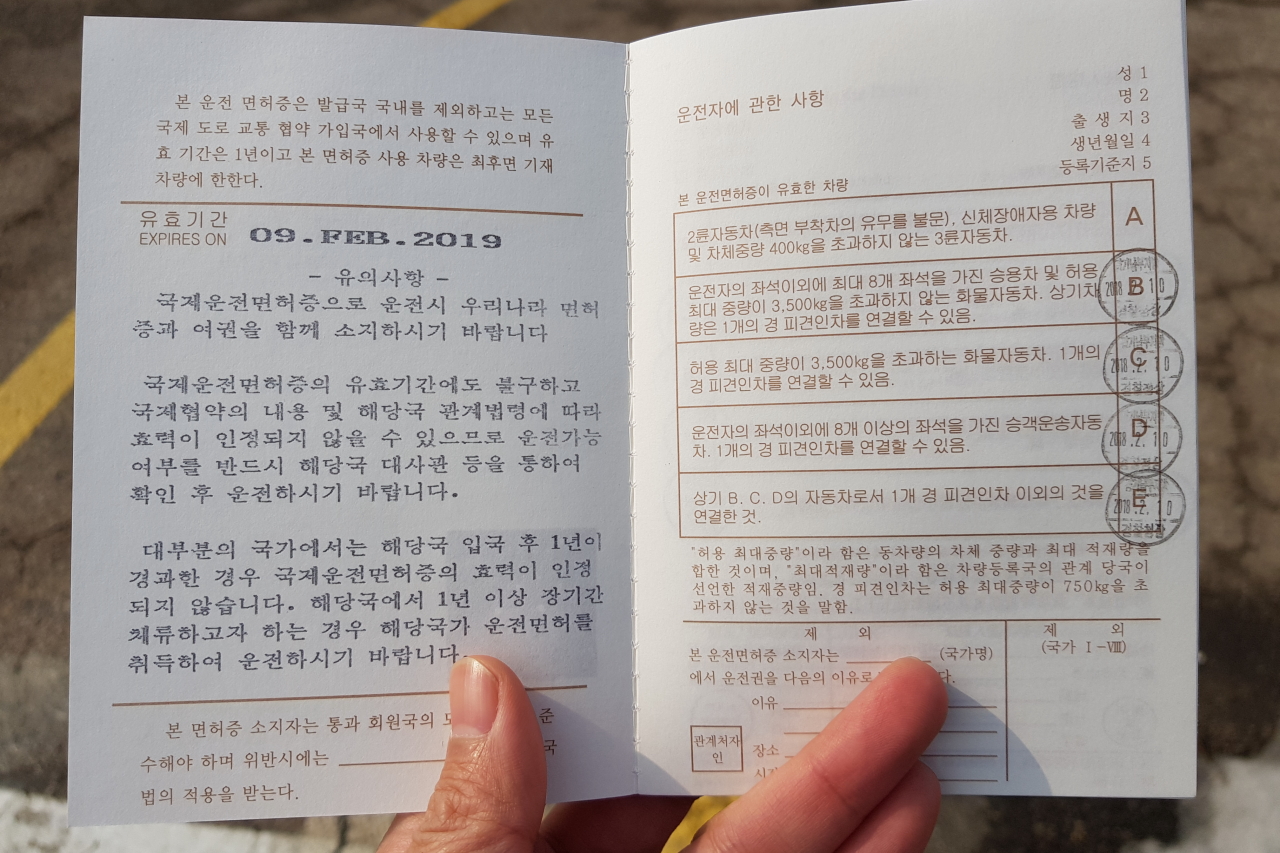 본 운전 면허증은 발급국 국내를 제외하고는 모든
국제 도로 교통 협약 가입국에서 사용할 수 있으며 유
효 기간은 1년이고 본 면허증 사용 차량은 최후면 기재
차량에 한한다.
유효기간
EXPIRES ON 09.FEB.2019
- 유의사항 -
국제운전면허증으로 운전시 우리나라 면허
증과 여권을 함께 소지하시기 바랍니다
국제운전면허증의 유효기간에도 불구하고
국제협약의 내용 및 해당국 관계법령에 따라
효력이 인정되지 않을 수 있으므로 운전가능
여부를 반드시 해당국 대사관 등을 통하여
확인 후 운전하시기 바랍니다.
대부분의 국가에서는 해당국 입국 후 1년이
경과한 경우 국제운전면허증의 효력이 인정
되지 않습니다. 해당국에서 1년 이상 장기간
체류하고자 하는 경우 해당국가 운전면허를
취득하여 운전하시기 바랍니다.
본 면허증 소지자는 통과 회원국의 준
수해야 하며 위반시에는 국
법의 적용을 받는다.
성 1
운전자에 관한 사항
명 2
출 생 지 3
생년월일 4
등록기준지 5
본 운전면허증이 유효한 차량
2륜자동차(측면 부착차의 유무를 불문), 신체장애자용 차량
및 차체중량 400kg을 초과하지 않는 3륜자동차.
A
운전자의 좌석이외에 최대 8개 좌석을 가진 승용차 및 허용
최대 중량이 3,500kg을 초과하지 않는 화물자동차. 상기차
량은 1개의 경 피견인차를 연결할 수 있음.
B
2018.2.10
허용 최대 중량이 3,500kg을 초과하는 화물자동차. 1개의
경 피견인차를 연결할 수 있음.
C
2018.2.10
운전자의 좌석이외에 8개 이상의 좌석을 가진 승객운송자동
차. 1개의 경 피견인차를 연결할 수 있음.
D
2018.2.10
상기 B. C. D의 자동차로서 1개 경 피견인차 이외의 것을
연결한 것.
E
2018.2.10
"허용 최대중량"이라 함은 동차량의 차체 중량과 최대 적재량을
합한 것이며, "최대적재량"이라 함은 차량등록국의 관계 당국이
선언한 적재중량임. 경 피견인차는 허용 최대중량이 750kg을 초
과하지 않는 것을 말함.
제 외
본 운전면허증 소지자는 (국가명)
에서 운전권을 다음의 이유로 다.
이유
관계처자
인
장소
제 외
(국가 Ⅰ-Ⅷ)